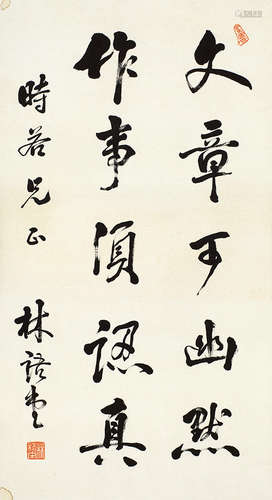 文章可幽默
作事須認真
時若兄正
林語堂